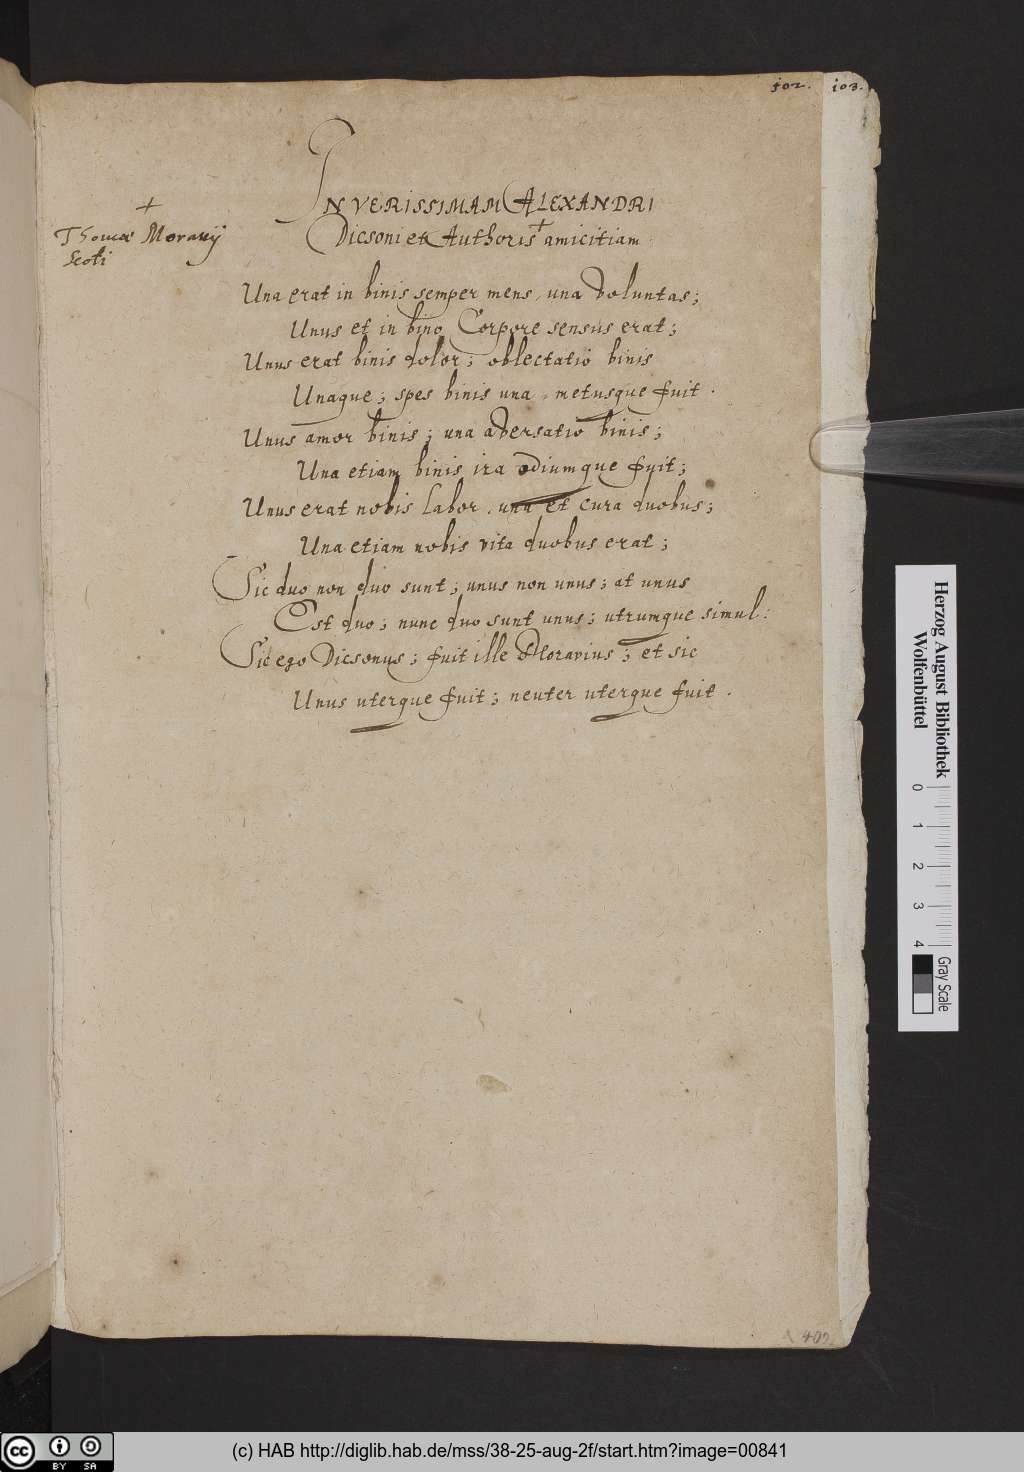 102. 103.
IN VERISSIMAM ALEXANDRI
Dicsoni et Authoris + amicitiam
+
Thomæ Moravij
Scoti
Una erat in binis semper mens, una voluntas;
Unus et in bino Corpore sensus erat;
Unus erat binis dolor; oblectatio binis
Unaque; spes binis una, metusque fuit.
Unus amor binis; una adversatio binis;
Una etiam binis ira odiumque fuit;
Unus erat nobis labor, una et cura duobus;
Una etiam nobis vita duobus erat;
Sic duo non duo sunt; unus non unus; at unus
Est duo; nunc duo sunt unus; utrumque simul:
Sic ego Dicsonus; fuit ille Moravius; et sic
Unus uterque fuit; neuter uterque fuit.
402.
Herzog August Bibliothek
Wolfenbüttel
0 1 2 3 4
Gray Scale
cc BY SA
(c) HAB http://diglib.hab.de/mss/38-25-aug-2f/start.htm?image=00841